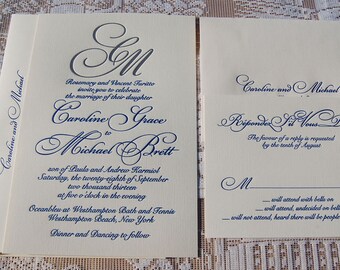 Caroline and Michael
GM
Rosemary and Vincent Turitto
invite you to celebrate
the marriage of their daughter
Caroline Grace
to
Michael Brett
son of Paula and Andrew Harmiol
Saturday, the twenty-eighth of September
two thousand thirteen
at five o'clock in the evening
Oceanbleu at Westhampton Bath and Tennis
Westhampton Beach, New York
Dinner and Dancing to follow
Caroline and Michael
Répondez S'il Vous
The favour of a reply is requested
by the tenth of August
M
will attend with bells on
will attend, undecided on bells
will not attend, heard there will be people